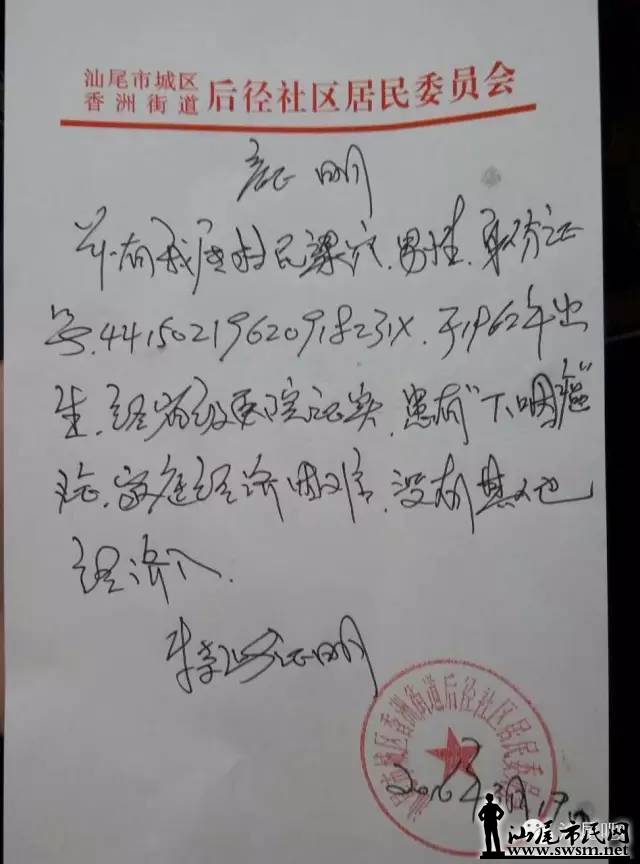 汕尾市城区
香洲街道
后径社区居民委员会
证明
兹有我居村民梁 , 男性, 身份证
号, 44150219620918231X. 于1962年出
生, 经省级医院证实, 患有"下咽癌"
现, 家庭经济困难, 没有其他
经济入.
特此证明
城区香洲街道后径社区居民委员
2016年 月17日
汕尾吧
汕尾市民网
www.swsm.net